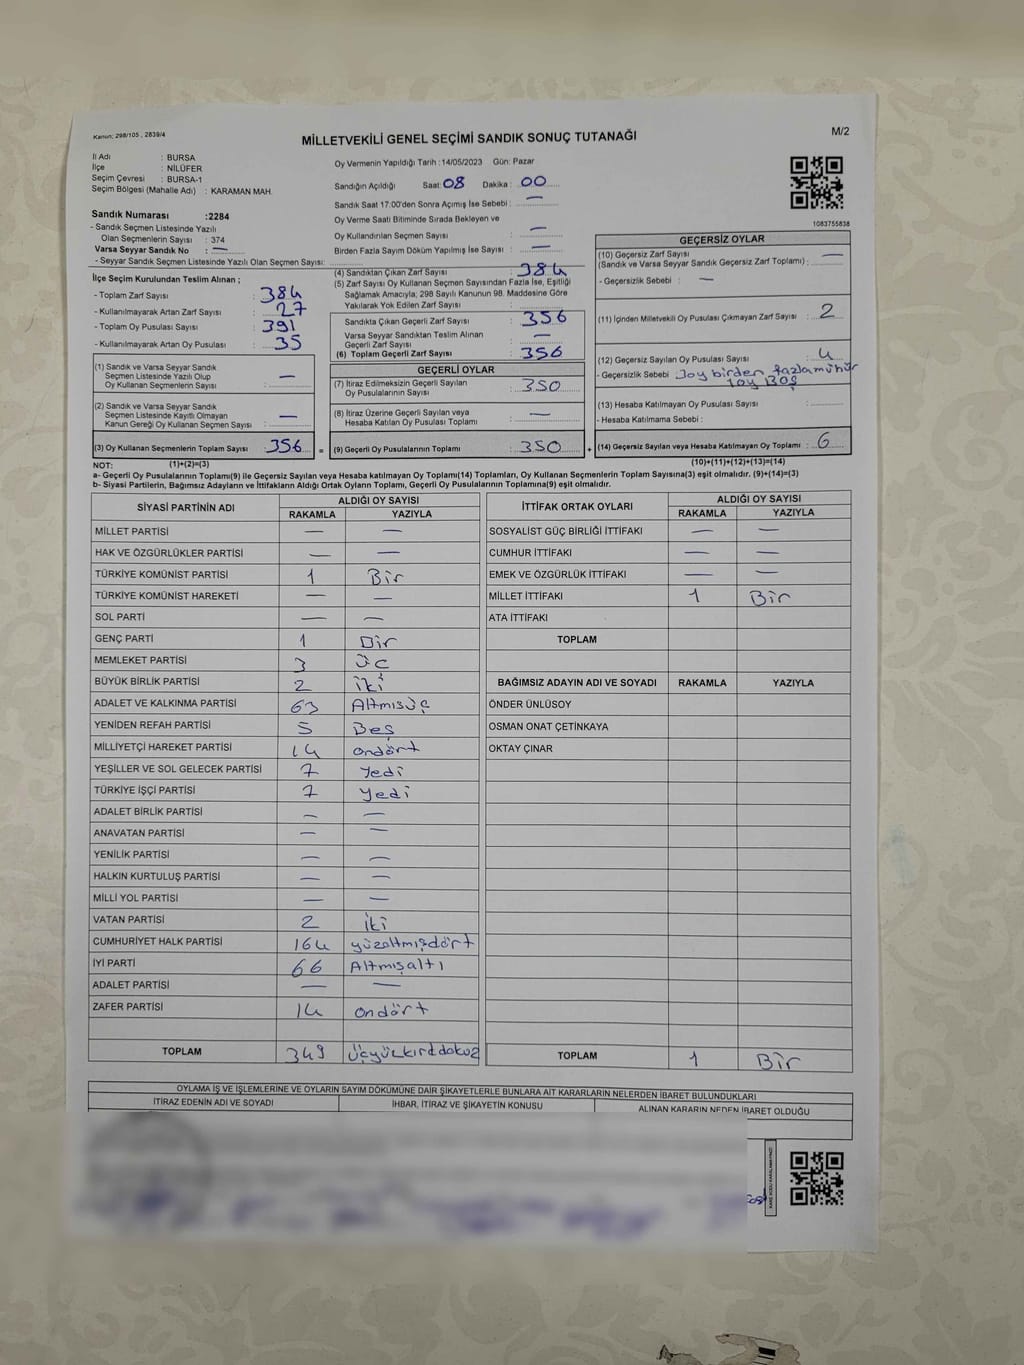 Kanun; 298/105 , 2839/4
MİLLETVEKİLİ GENEL SEÇİMİ SANDIK SONUÇ TUTANAĞI
M/2
İl Adı : BURSA
İlçe : NİLÜFER
Seçim Çevresi : BURSA-1
Seçim Bölgesi (Mahalle Adı) : KARAMAN MAH.
Oy Vermenin Yapıldığı Tarih :14/05/2023 Gün: Pazar
Sandığın Açıldığı Saat 08 Dakika : 00
Sandık Saat 17:00'den Sonra Açımış İse Sebebi : —
Oy Verme Saati Bitiminde Sırada Bekleyen ve
Oy Kullandırılan Seçmen Sayısı : —
Birden Fazla Sayım Döküm Yapılmış İse Sayısı : —
1083755838
Sandık Numarası :2284
- Sandık Seçmen Listesinde Yazılı
Olan Seçmenlerin Sayısı : 374
Varsa Seyyar Sandık No : —
- Seyyar Sandık Seçmen Listesinde Yazılı Olan Seçmen Sayısı:
İlçe Seçim Kurulundan Teslim Alınan ;
- Toplam Zarf Sayısı : 384
- Kullanılmayarak Artan Zarf Sayısı : 27
- Toplam Oy Pusulası Sayısı : 391
- Kullanılmayarak Artan Oy Pusulası : 35
(1) Sandık ve Varsa Seyyar Sandık
Seçmen Listesinde Yazılı Olup
Oy Kullanan Seçmenlerin Sayısı : —
(2) Sandık ve Varsa Seyyar Sandık
Seçmen Listesinde Kayıtlı Olmayan
Kanun Gereği Oy Kullanan Seçmen Sayısı : —
(3) Oy Kullanan Seçmenlerin Toplam Sayısı : 356 =
(4) Sandıktan Çıkan Zarf Sayısı : 384
(5) Zarf Sayısı Oy Kullanan Seçmen Sayısından Fazla İse, Eşitliği
Sağlamak Amacıyla; 298 Sayılı Kanunun 98. Maddesine Göre
Yakılarak Yok Edilen Zarf Sayısı :
Sandıkta Çıkan Geçerli Zarf Sayısı : 356
Varsa Seyyar Sandıktan Teslim Alınan
Geçerli Zarf Sayısı : —
(6) Toplam Geçerli Zarf Sayısı : 356
GEÇERLİ OYLAR
(7) İtiraz Edilmeksizin Geçerli Sayılan
Oy Pusulalarının Sayısı : 350
(8) İtiraz Üzerine Geçerli Sayılan veya
Hesaba Katılan Oy Pusulası Toplamı : —
(9) Geçerli Oy Pusulalarının Toplamı : 350 +
GEÇERSİZ OYLAR
(10) Geçersiz Zarf Sayısı —
(Sandık ve Varsa Seyyar Sandık Geçersiz Zarf Toplamı) :
- Geçersizlik Sebebi : —
(11) İçinden Milletvekili Oy Pusulası Çıkmayan Zarf Sayısı : 2
(12) Geçersiz Sayılan Oy Pusulası Sayısı : 4
- Geçersizlik Sebebi : 3oy birden fazla mühür
1oy BOŞ
(13) Hesaba Katılmayan Oy Pusulası Sayısı :
- Hesaba Katılmama Sebebi :
(14) Geçersiz Sayılan veya Hesaba Katılmayan Oy Toplamı : 6
NOT: (1)+(2)=(3) (10)+(11)+(12)+(13)=(14)
a- Geçerli Oy Pusulalarının Toplamı(9) ile Geçersiz Sayılan veya Hesaba katılmayan Oy Toplamı(14) Toplamları, Oy Kullanan Seçmenlerin Toplam Sayısına(3) eşit olmalıdır. (9)+(14)=(3)
b- Siyasi Partilerin, Bağımsız Adayların ve İttifakların Aldığı Ortak Oyların Toplamı, Geçerli Oy Pusulalarının Toplamına(9) eşit olmalıdır.
SİYASİ PARTİNİN ADI ALDIĞI OY SAYISI
RAKAMLA YAZIYLA
MİLLET PARTİSİ — —
HAK VE ÖZGÜRLÜKLER PARTİSİ — —
TÜRKİYE KOMÜNİST PARTİSİ 1 Bir
TÜRKİYE KOMÜNİST HAREKETİ — —
SOL PARTİ — —
GENÇ PARTİ 1 Bir
MEMLEKET PARTİSİ 3 Üç
BÜYÜK BİRLİK PARTİSİ 2 İki
ADALET VE KALKINMA PARTİSİ 63 Altmışüç
YENİDEN REFAH PARTİSİ 5 Beş
MİLLİYETÇİ HAREKET PARTİSİ 14 ondört
YEŞİLLER VE SOL GELECEK PARTİSİ 7 Yedi
TÜRKİYE İŞÇİ PARTİSİ 7 Yedi
ADALET BİRLİK PARTİSİ — —
ANAVATAN PARTİSİ — —
YENİLİK PARTİSİ — —
HALKIN KURTULUŞ PARTİSİ — —
MİLLİ YOL PARTİSİ — —
VATAN PARTİSİ 2 İki
CUMHURİYET HALK PARTİSİ 164 yüzaltmışdört
İYİ PARTİ 66 Altmışaltı
ADALET PARTİSİ — —
ZAFER PARTİSİ 14 ondört
TOPLAM 349 Üçyüzkırkdokuz
İTTİFAK ORTAK OYLARI ALDIĞI OY SAYISI
RAKAMLA YAZIYLA
SOSYALİST GÜÇ BİRLİĞİ İTTİFAKI — —
CUMHUR İTTİFAKI — —
EMEK VE ÖZGÜRLÜK İTTİFAKI — —
MİLLET İTTİFAKI 1 Bir
ATA İTTİFAKI
TOPLAM
BAĞIMSIZ ADAYIN ADI VE SOYADI RAKAMLA YAZIYLA
ÖNDER ÜNLÜSOY
OSMAN ONAT ÇETİNKAYA
OKTAY ÇINAR
TOPLAM 1 Bir
OYLAMA İŞ VE İŞLEMLERİNE VE OYLARIN SAYIM DÖKÜMÜNE DAİR ŞİKAYETLERLE BUNLARA AİT KARARLARIN NELERDEN İBARET BULUNDUKLARI
İTİRAZ EDENİN ADI VE SOYADI İHBAR, İTİRAZ VE ŞİKAYETİN KONUSU ALINAN KARARIN NEDEN İBARET OLDUĞU